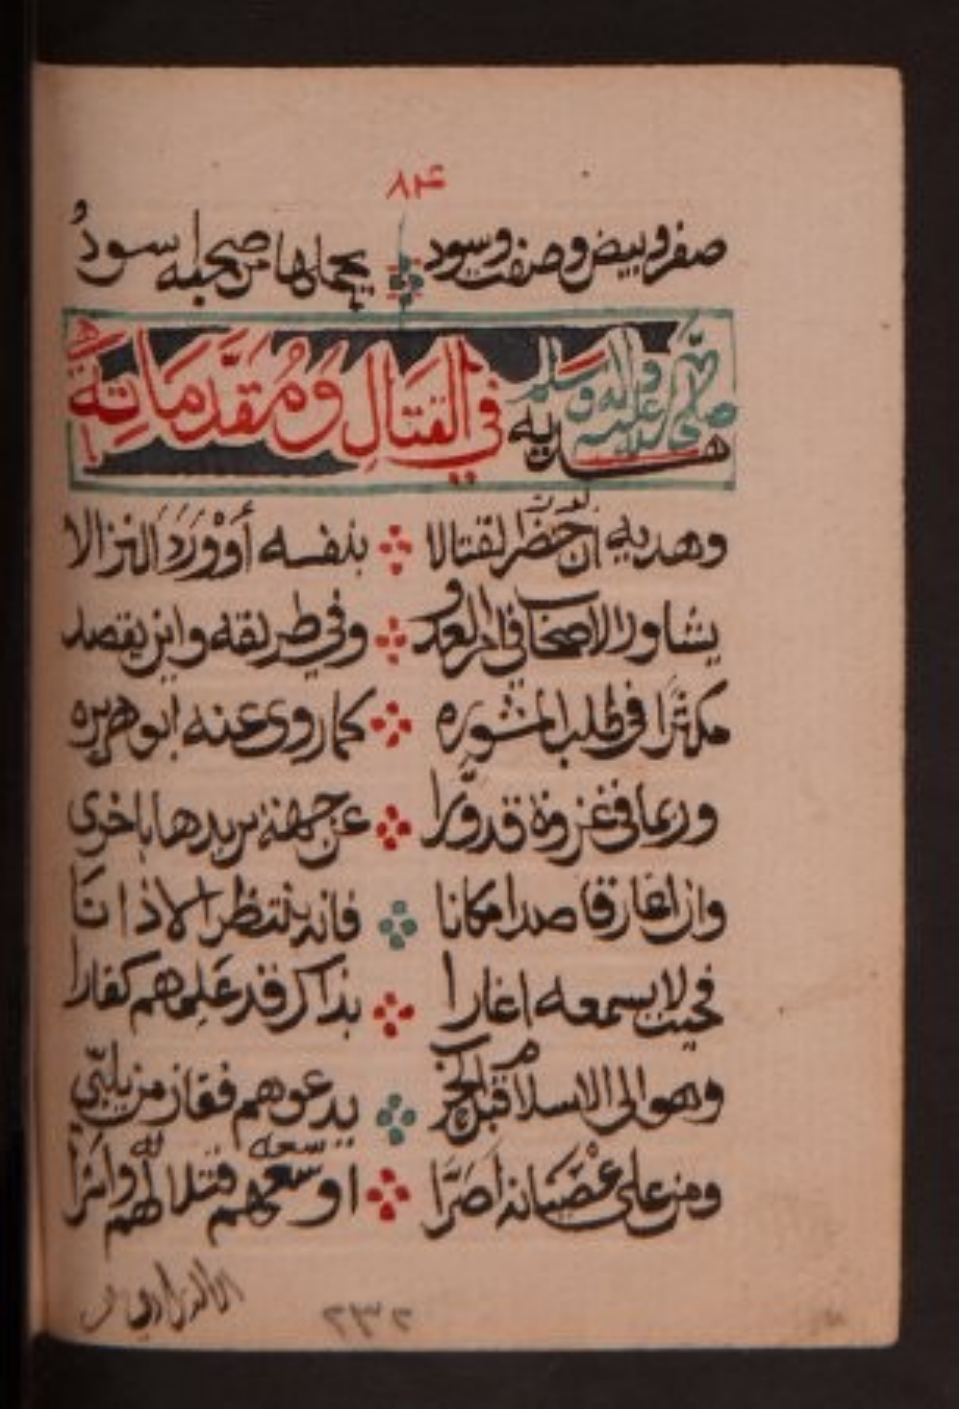 ٨٤
صفر وبيض وصفت وسود يحملها من صحبه سود
هديه صلى الله عليه وآله وسلم في القتال ومقدماته
وهديه ان حضر القتالا بنفسه أو ورد النزالا
يشاور الاصحاب في امر العدو وفي طريقه واين يقصد
مكثرا في طلب المشوره كما روى عنه ابو هريره
وربما في غزوة قد ورّا عن جهة يريدها باخرى
وان اغار قاصدا مكانا فانه ينتظر الاذانا
فحيث لا يسمعه اغارا بذاك قد علمهم كفارا
وهو الى الاسلام قبل الحرب يدعوهم ففاز من يلبّي
ومن على عصيانه أصرّا اوسعهم قتلا لهم وأسرا
٢٣٢